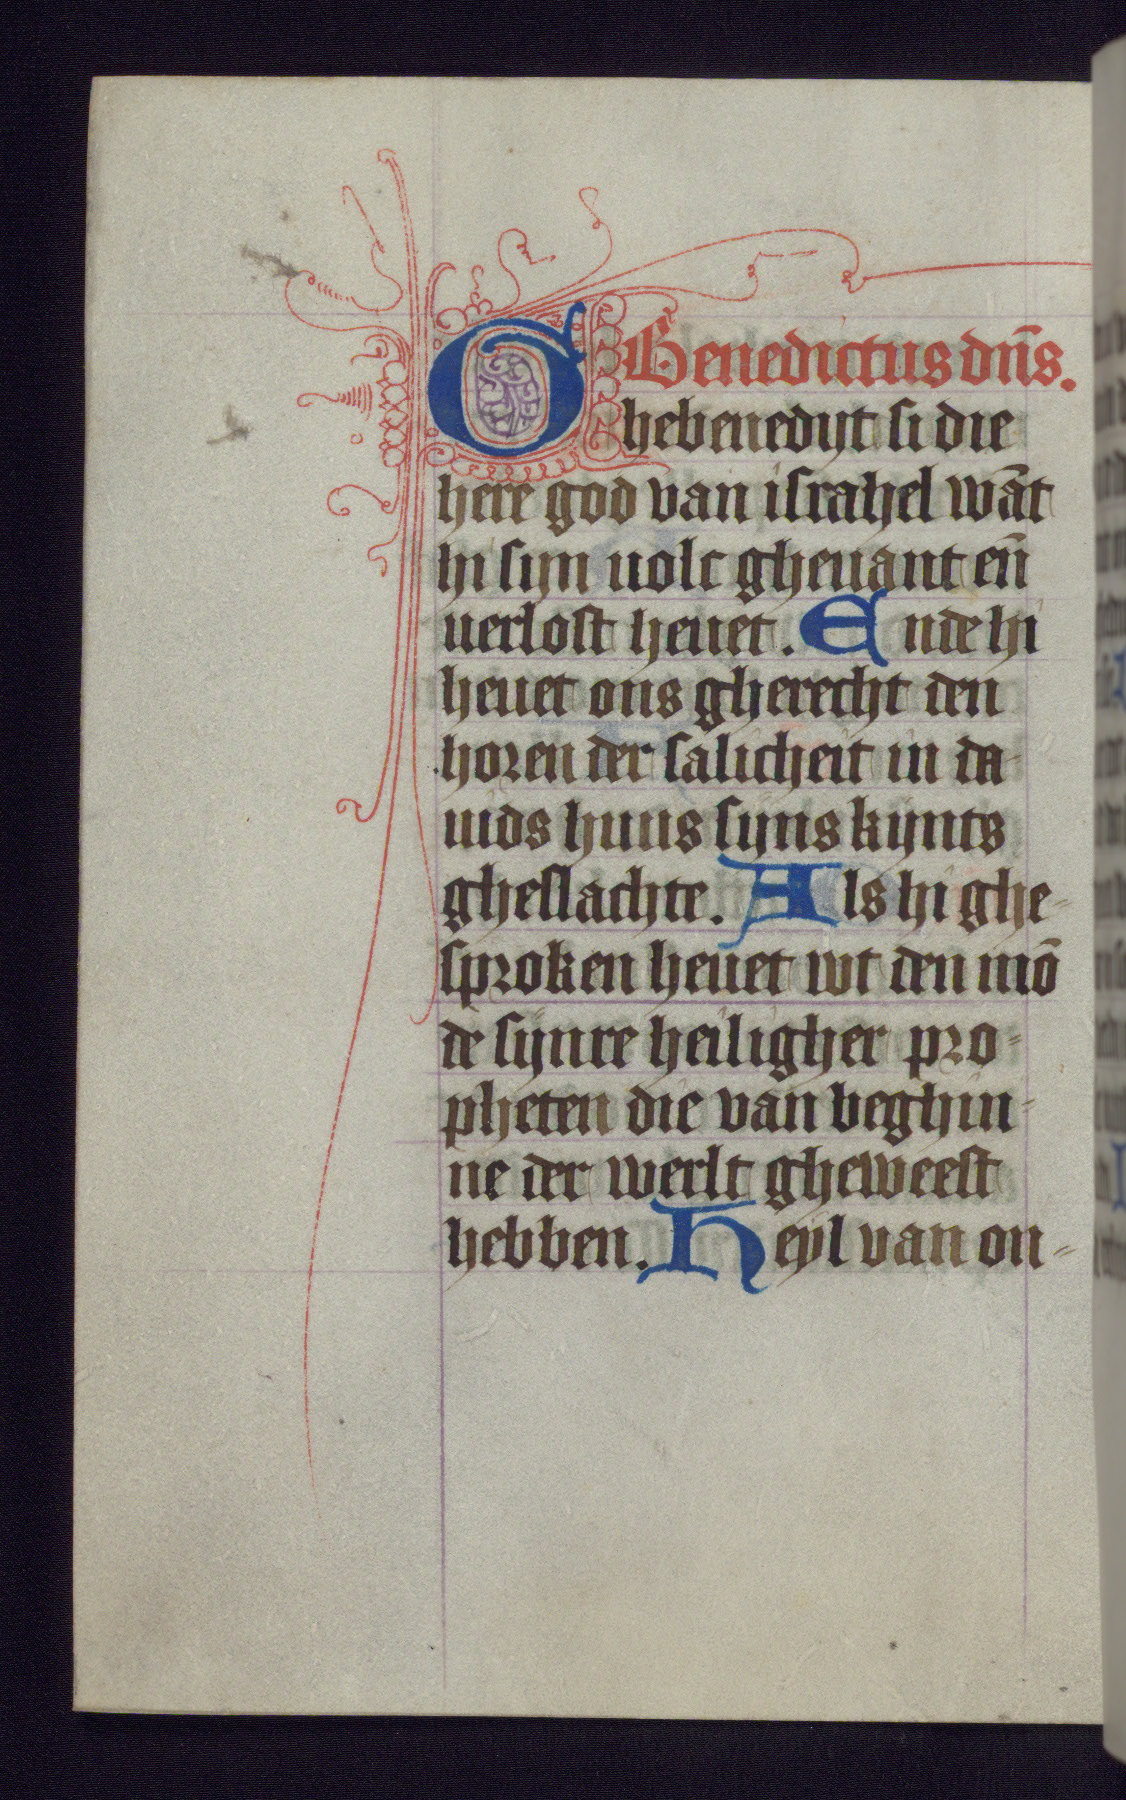 Benedictus dn̄s.
Ghebenedijt si die
here god van israhel wāt
hi sijn uolc gheuant en̄
uerlost heuet. Ende hi
heuet ons gherecht den
horen der salicheit in da-
uids huus sijns kijnts
gheslachte. Als hi ghe-
sproken heuet wt den mō
de sijnre heiligher pro-
pheten die van beghin-
ne der werlt gheweest
hebben. Heyl van on-